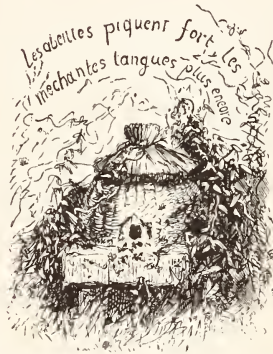 Les abeilles piquent fort, les
mechantes langues plus encore